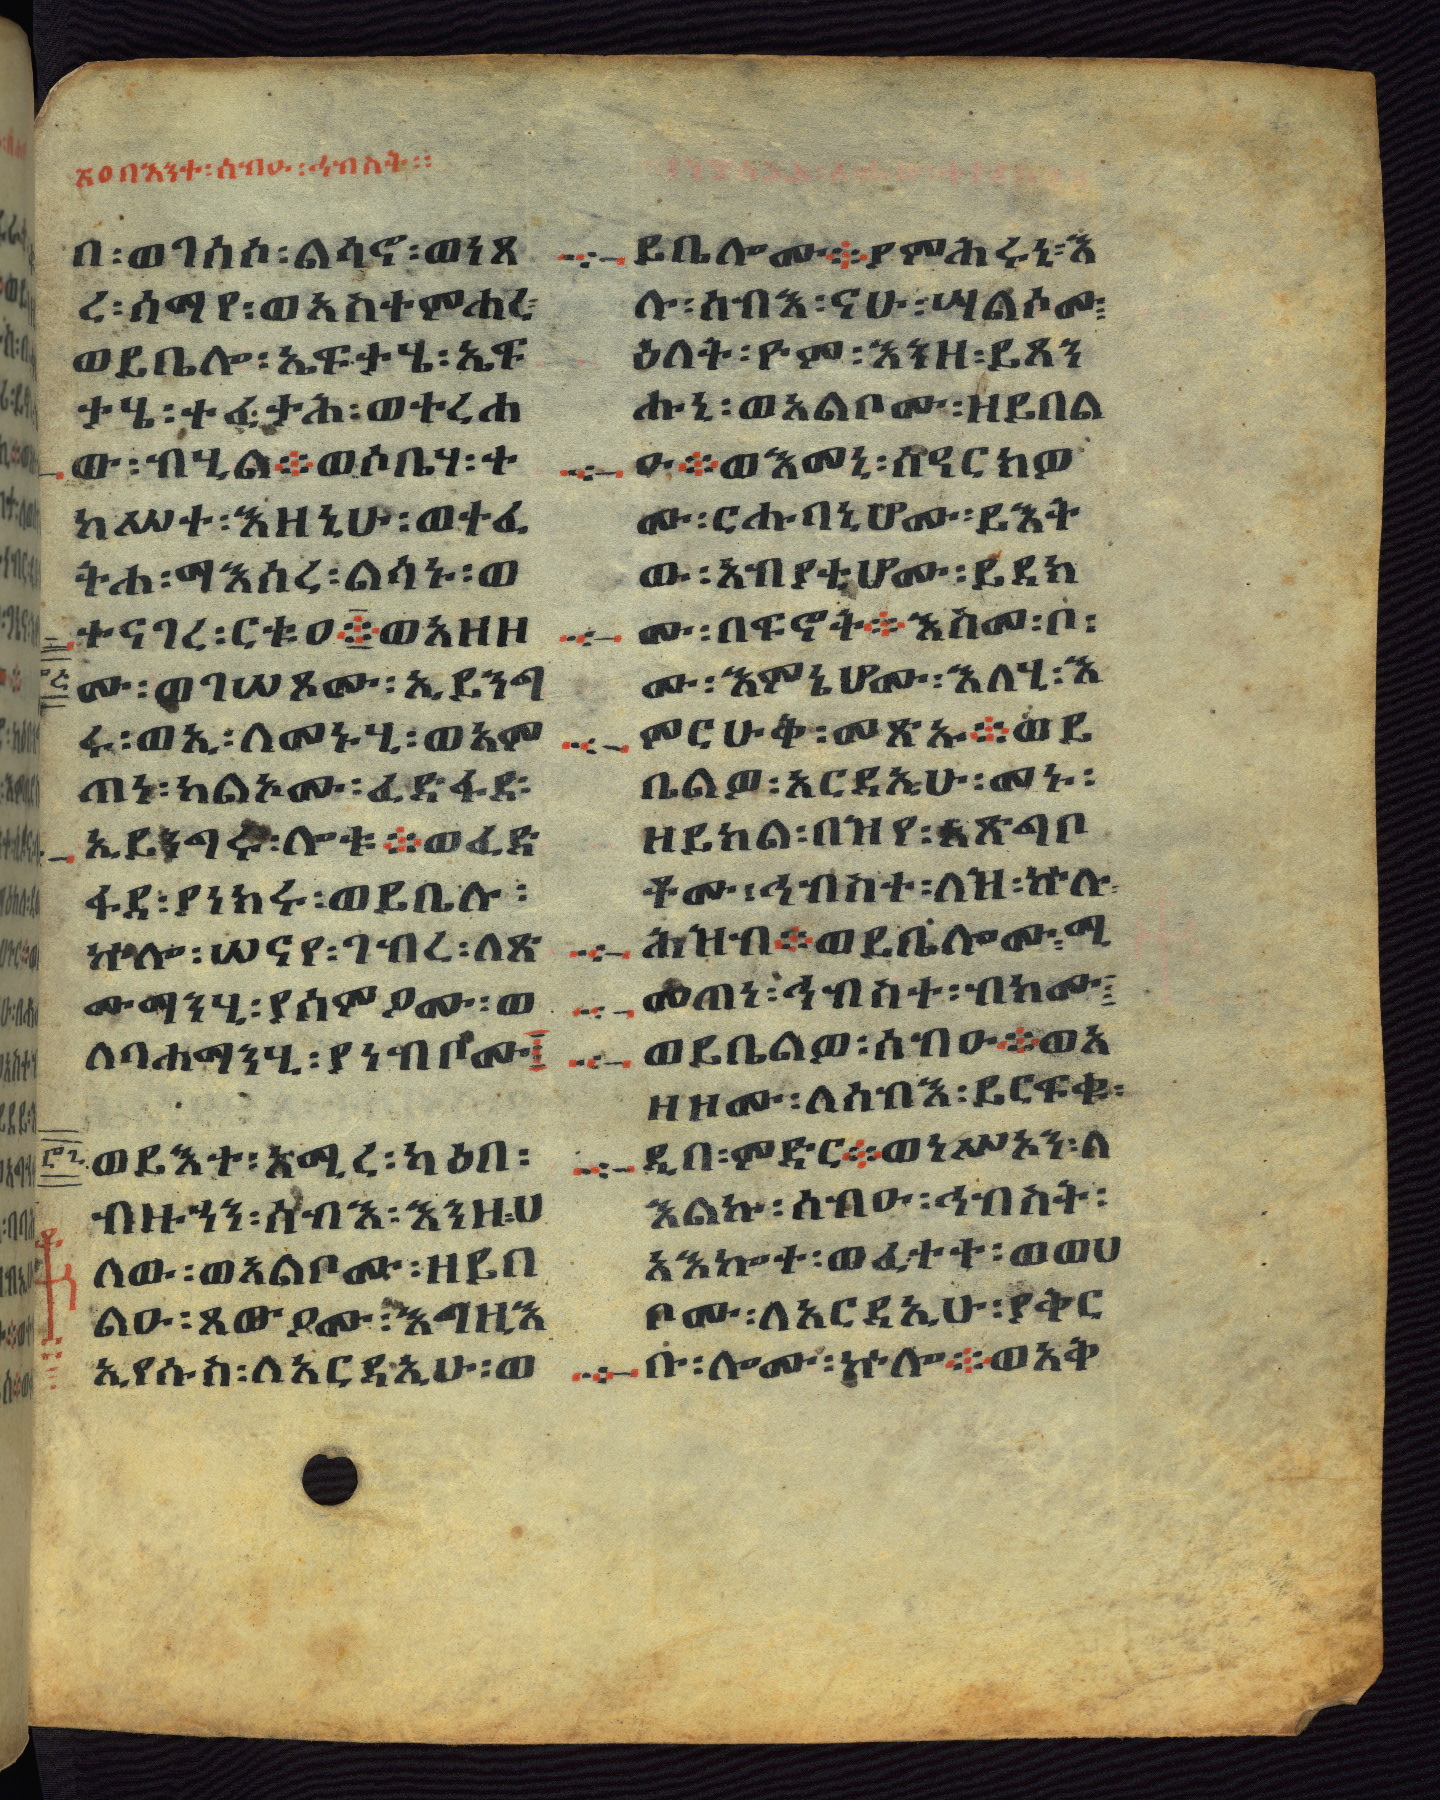 ፳፬በእንተ፡ሰብዑ፡ኅብስት፡፡
በ፡ወገሰሶ፡ልሳኖ፡ወነጸ
ረ፡ሰማየ፡ወአስተምሐረ፡
ወይቤሎ፡ኢፍታሄ፡ኢፍ
ታሄ፡ተፈታሕ፡ወተረሐ
ው፡ብሂል፨ወሶቤሃ፡ተ
ከሥተ፡እዘኒሁ፡ወተፈ
ትሐ፡ማእሰረ፡ልሳኑ፡ወ
ተናገረ፡ርቱዐ፨ወአዘዘ
ሙ፡ወገሠጾሙ፡ኢይንግ
ሩ፡ወኢ፡ለመኑሂ፡ወአም
ጣነ፡ከልኦሙ፡ፈድፋደ፡
ኢይንግሩ፡ሎቱ፨ወፈድ
ፋደ፡ያነክሩ፡ወይቤሉ፡
ኵሎ፡ሠናየ፡ገብረ፡ለጽ
ሙማንሂ፡ያሰምዖሙ፡ወ
ለባሐማንሂ፡ያነብቦሙ፨
ወይእተ፡አሚረ፡ካዕበ፡
ብዙኃን፡ሰብእ፡እንዘ፡ሀ
ለው፡ወአልቦሙ፡ዘይበ
ልዑ፡ጸውዖሙ፡እግዚእ
ኢየሱስ፡ለአርዳኢሁ፡ወ
ይቤሎሙ፨ያምሕሩኒ፡እ
ሉ፡ሰብእ፡ናሁ፡ሣልሶሙ፡
ዕለት፡ዮም፡እንዘ፡ይጸን
ሑኒ፡ወአልቦሙ፡ዘይበል
ዑ፨ወእመኒ፡ሰዓርክዎ
ሙ፡ርሑባኒሆሙ፡ይእት
ው፡አብያቲሆሙ፡ይደክ
ሙ፡በፍኖት፨እስመ፡ቦ፡
ሙ፡እምኔሆሙ፡እለሂ፡እ
ምርሁቅ፡መጽኡ፨ወይ
ቤልዎ፡አርዳኢሁ፡መኑ፡
ዘይክል፡በዝየ፡አጽግቦ
ቶሙ፡ኅብስተ፡ለዝ፡ኵሉ፡
ሕዝብ፨ወይቤሎሙ፡ሚ
መጠነ፡ኅብስተ፡ብክሙ፡
ወይቤልዎ፡ሰብዑ፨ወአ
ዘዘሙ፡ለሰብእ፡ይርፍቁ፡
ዲበ፡ምድር፨ወነሥአን፡ለ
እልኩ፡ሰብዑ፡ኅብስት፡
አእኰተ፡ወፈተተ፡ወወሀ
ቦሙ፡ለአርዳኢሁ፡ያቅር
ቡ፡ሎሙ፡ኵሎ፨ወአቅ